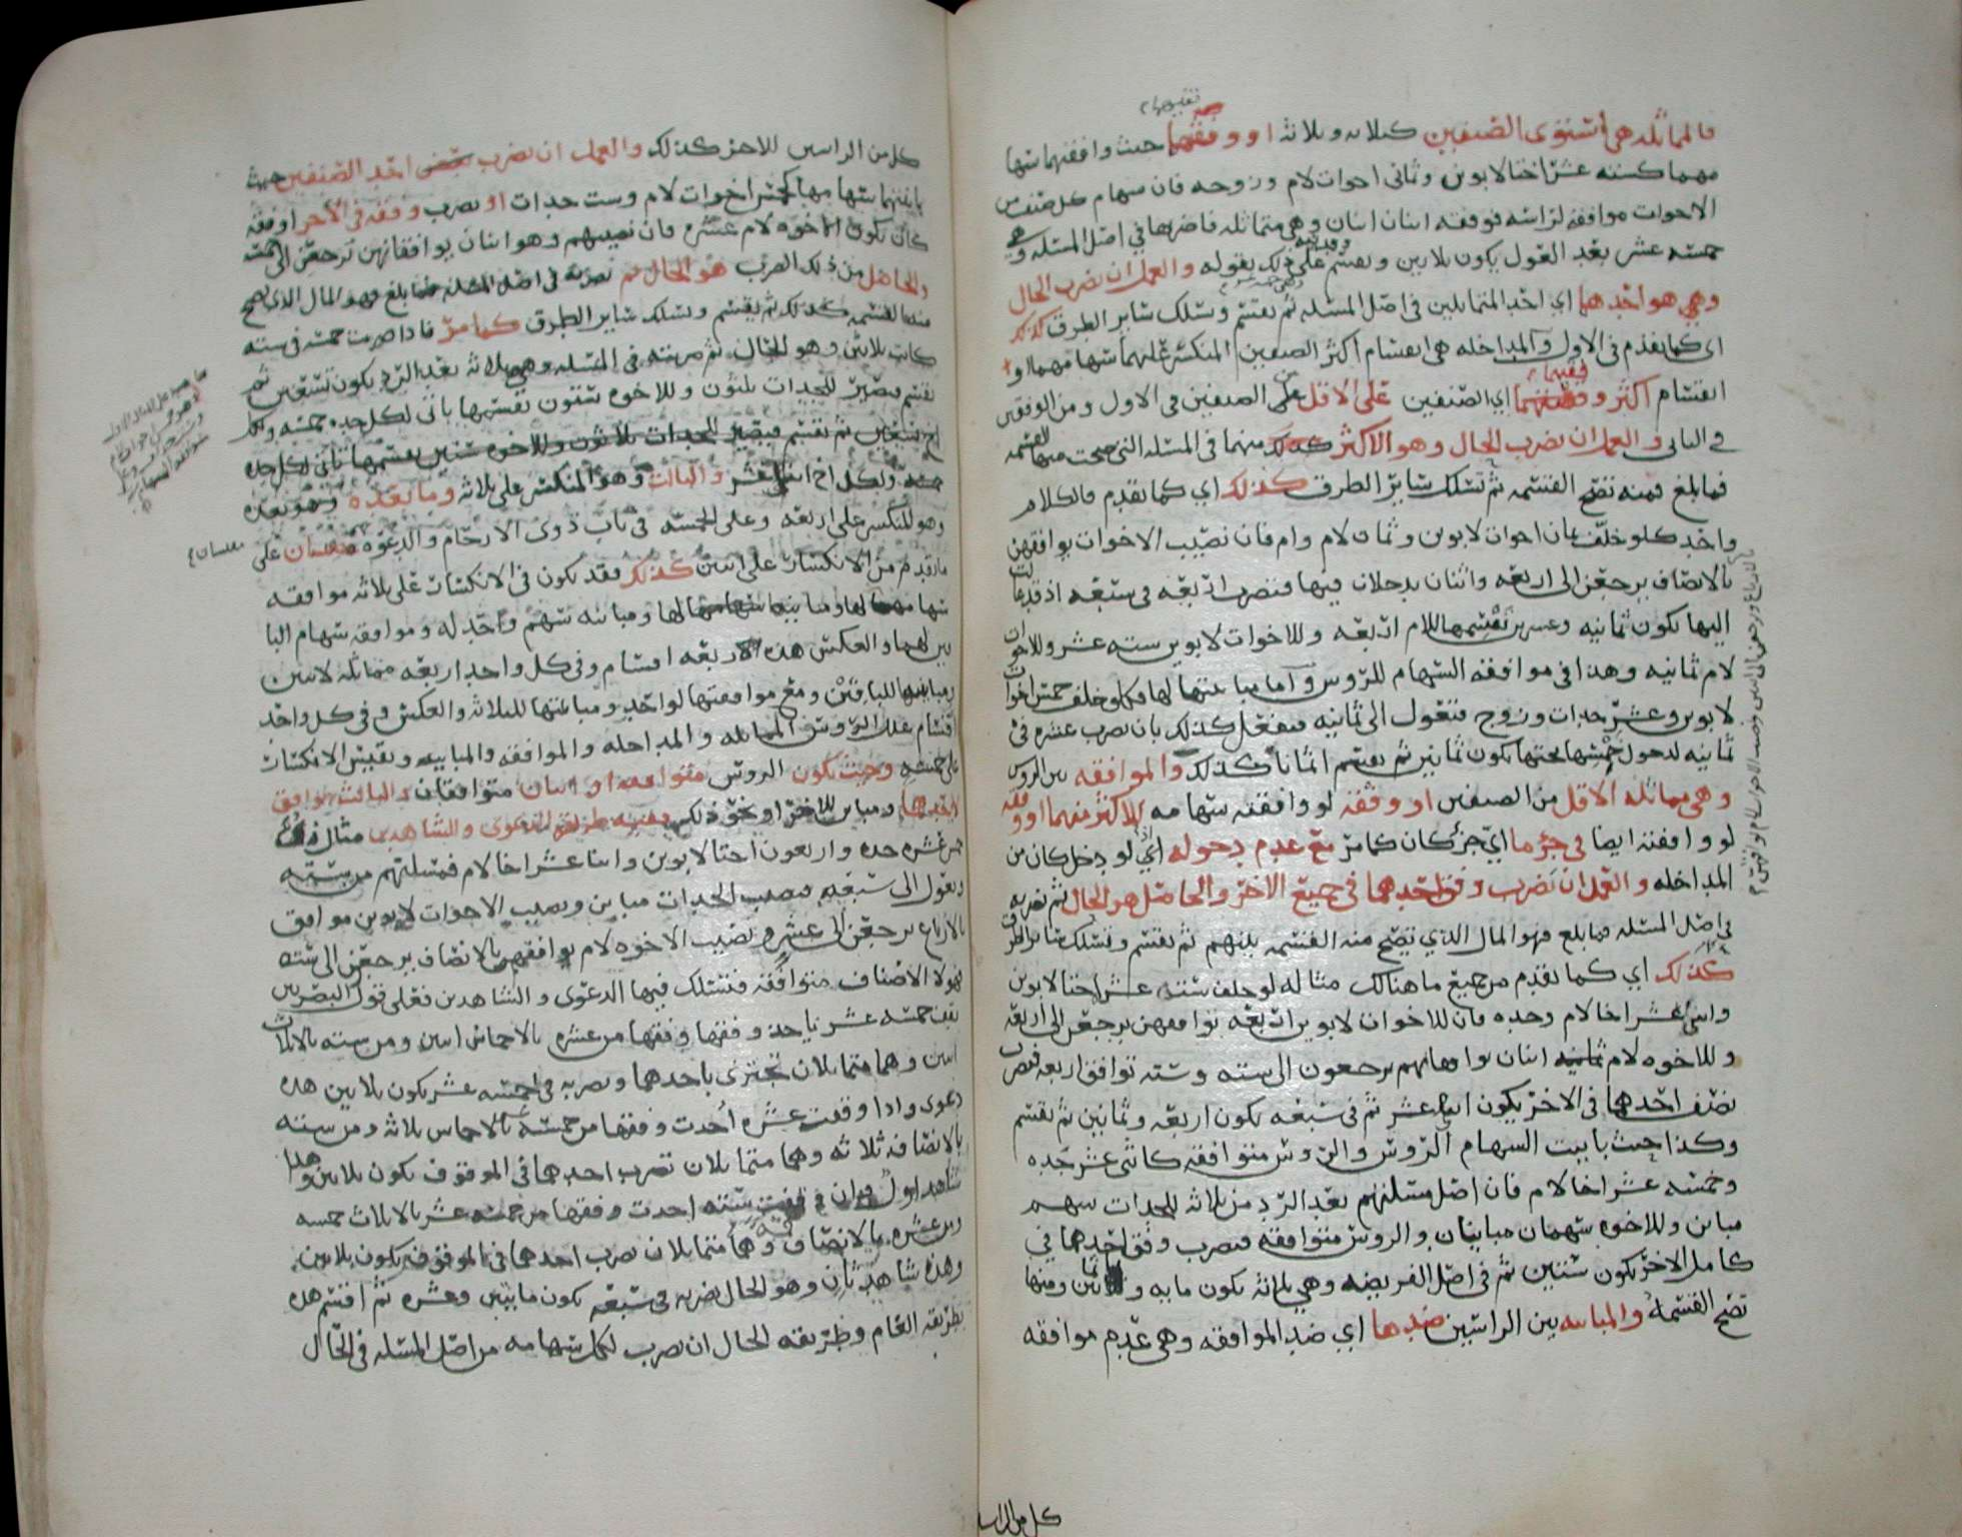 فالمماثله هي استوى الصنفين كثلاثه وثلاثه او وفقهما حيث وافقتهما سهامهما
كسته عشر اختا لابوين وثماني اخوات لام وزوجه فان سهام كل صنف من
الاخوات موافقه لراسه فوفقه اثنان اثنان وهي متماثله فاضربها في اصل المسئله وهي
خمسه عشر بعد العول يكون ثلاثين ويقسم على ذلك بقوله والعمل ان تضرب الحال
وهي هو احدهما اي احد المتماثلين في اصل المسئله ثم يقسم وتسلك سائر الطرق كذلك
اي كما تقدم في الاول والمداخله هي انقسام اكثر الصنفين المنكسر عليهما سهامهما او
انقسام اكثر وفقيهما اي الصنفين على الاقل من الصنفين في الاول ومن الوفقين
في الثاني والعمل ان تضرب الحال وهو الاكثر كذلك منهما في المسئله التي صحت منها القسمه
فما بلغ فمنه تصح القسمه ثم تسلك سائر الطرق كذلك اي كما تقدم فالكلام
واحد كلو خلف ثمان اخوات لابوين وثمان لام وام فان نصيب الاخوات يوافقهن
بالانصاف يرجعن الى اربعه واثنان يدخلان فيها فتضرب اربعه في سبعه اذ قد عالت
اليها يكون ثمانيه وعشرين تقسمها للام اربعه وللاخوات لابوين سته عشر وللاخوات
لام ثمانيه وهذا في موافقه السهام للروس واما مباينتها لها فكلو خلف خمس اخوات
لابوين وعشر جدات وزوج فتعول الى ثمانيه فتفعل كذلك بان تضرب عشره في
ثمانيه لدخول خمسها تحتها يكون ثمانين ثم يقسم اثمانا كذلك والموافقه بين الروس
وهي مماثله الاقل من الصنفين او وفقه لو وافقته سهامه للاكثر منهما او وفقه
لو وافقته ايضا في جزء ما اي جزء كان كما مر مع عدم دخوله اي لو دخل كان من
المداخله والعمل ان تضرب وفق احدهما في جميع الاخر والحاصل هو الحال ثم تضربه
في اصل المسئله فما بلغ فهو المال الذي تصح منه القسمه بينهم ثم يقسم وتسلك سائر الطرق
كذلك اي كما تقدم من جميع ما هنالك مثاله لو خلف سته عشر اختا لابوين
واثنى عشر اخا لام وجده فان للاخوات لابوين اربعه توافقهن يرجعن الى اربعه
وللاخوه لام اثنان يوافقانهم يرجعون الى سته وسته توافق اربعه فتضرب
نصف احدهما في الاخر يكون اثنا عشر ثم في سبعه يكون اربعه وثمانين ثم يقسم
وكذا حيث باينت السهام الروس والروس متوافقه كاثنى عشر جده
وخمسه عشر اخا لام فان اصل مسئلتهم بعد الرد من ثلاثه للجدات سهم
مباين وللاخوه سهمان مباينان والروس متوافقه فتضرب وفق احدهما في
كامل الاخر يكون ستين ثم في اصل الفريضه وهي ثلاثه يكون مايه وثمانين ومنها
تصح القسمه والمباينه بين الراسين ضدها اي ضد الموافقه وهي عدم موافقه
كل من الراسين
كل من الراسين للاخر كذلك والعمل ان تضرب بعض احد الصنفين حيث
باينتهما سهامهما كخمس اخوات لام وست جدات او تضرب وفقه في الاخر او وفقه
كان يكون الاخوه لام عشره فان نصيبهم وهو اثنان يوافقانهم ترجعن الى خمسه
والحاصل من ذلك الضرب هو الحال ثم تضربه في اصل المسئله فما بلغ فهو المال الذي تصح
منه القسمه كذلك ثم يقسم وتسلك سائر الطرق كما مر فاذا ضربت خمسه في سته
كانت ثلاثين وهو الحال ثم ضربته في المسئله وهي ثلاثه بعد الرد يكون تسعين ثم
تقسم فيصير للجدات ثلثون وللاخوه ستون تقسمها ياتي لكل جده خمسه ولكل
اخ
ولكل اخ اثنى عشر والثالث وهو المنكسر على ثلاثه وما بعده وهو بعده
وهو المنكسر على اربعه وعلى الخمسه في باب ذوى الارحام والدعوه مقيسان على
ما تقدم من الانكسار على اثنين كذلك فقد يكون في الانكسار على ثلاثه موافقه
سهامها لها ومباينه سهامها لها ومباينه سهم واحد له وموافقه سهام البا
قيين لهما والعكس هذه الاربعه اقسام وفي كل واحد اربعه مماثله لاثنين
ومباينتها للباقين ومع موافقتها لواحد ومباينتها للثلاثه والعكس وفي كل واحد
اقسام تلك الروس المماثله والمداخله والموافقه والمباينه وبقيس الانكسار
على خمسه وحيث يكون الروس متوافقه او اثنان متوافقان والثالث يوافق
احدهما ومباين للاخر او نحو ذلك ففيه طرق الدعوى والشاهد مثال ذلك
خمس عشره جده واربعون اختا لابوين واثنا عشر اخا لام فمسئلتهم من سته
وتعول الى سبعه فنصيب الجدات مباين ونصيب الاخوات لابوين موافق
بالارباع يرجعن الى عشره ونصيب الاخوه لام يوافقهم بالانصاف يرجعن الى سته
فهولا الاصناف متوافقه فتسلك فيها الدعوى والشاهدين فعلى قول البصريين
تقف خمسه عشر تاخذ وفقها من عشره بالاخماس اثنين ومن سته بالاثلاث
اثنين وهما متماثلان تجتزى باحدهما وتضربه في خمسه عشر يكون ثلاثين هذه
دعوى واذا وقفت عشره اخذت وفقها من خمسه عشر بالاخماس ثلاثه ومن سته
بالانصاف ثلاثه وهما متماثلان تضرب احدهما في الموقوف يكون ثلاثين وهذا
شاهد اول وان وقفت سته اخذت وفقها من خمسه عشر بالاثلاث خمسه
ومن عشره بالانصاف خمسه وهما متماثلان تضرب احدهما في الموقوف يكون ثلاثين
وهذه شاهد ثان وهو الحال تضربه في سبعه يكون مايتين وعشره ثم اقسم هذه
بطريقه العام وطريقه الحال ان تضرب لكل سهامه من اصل المسئله في الحال